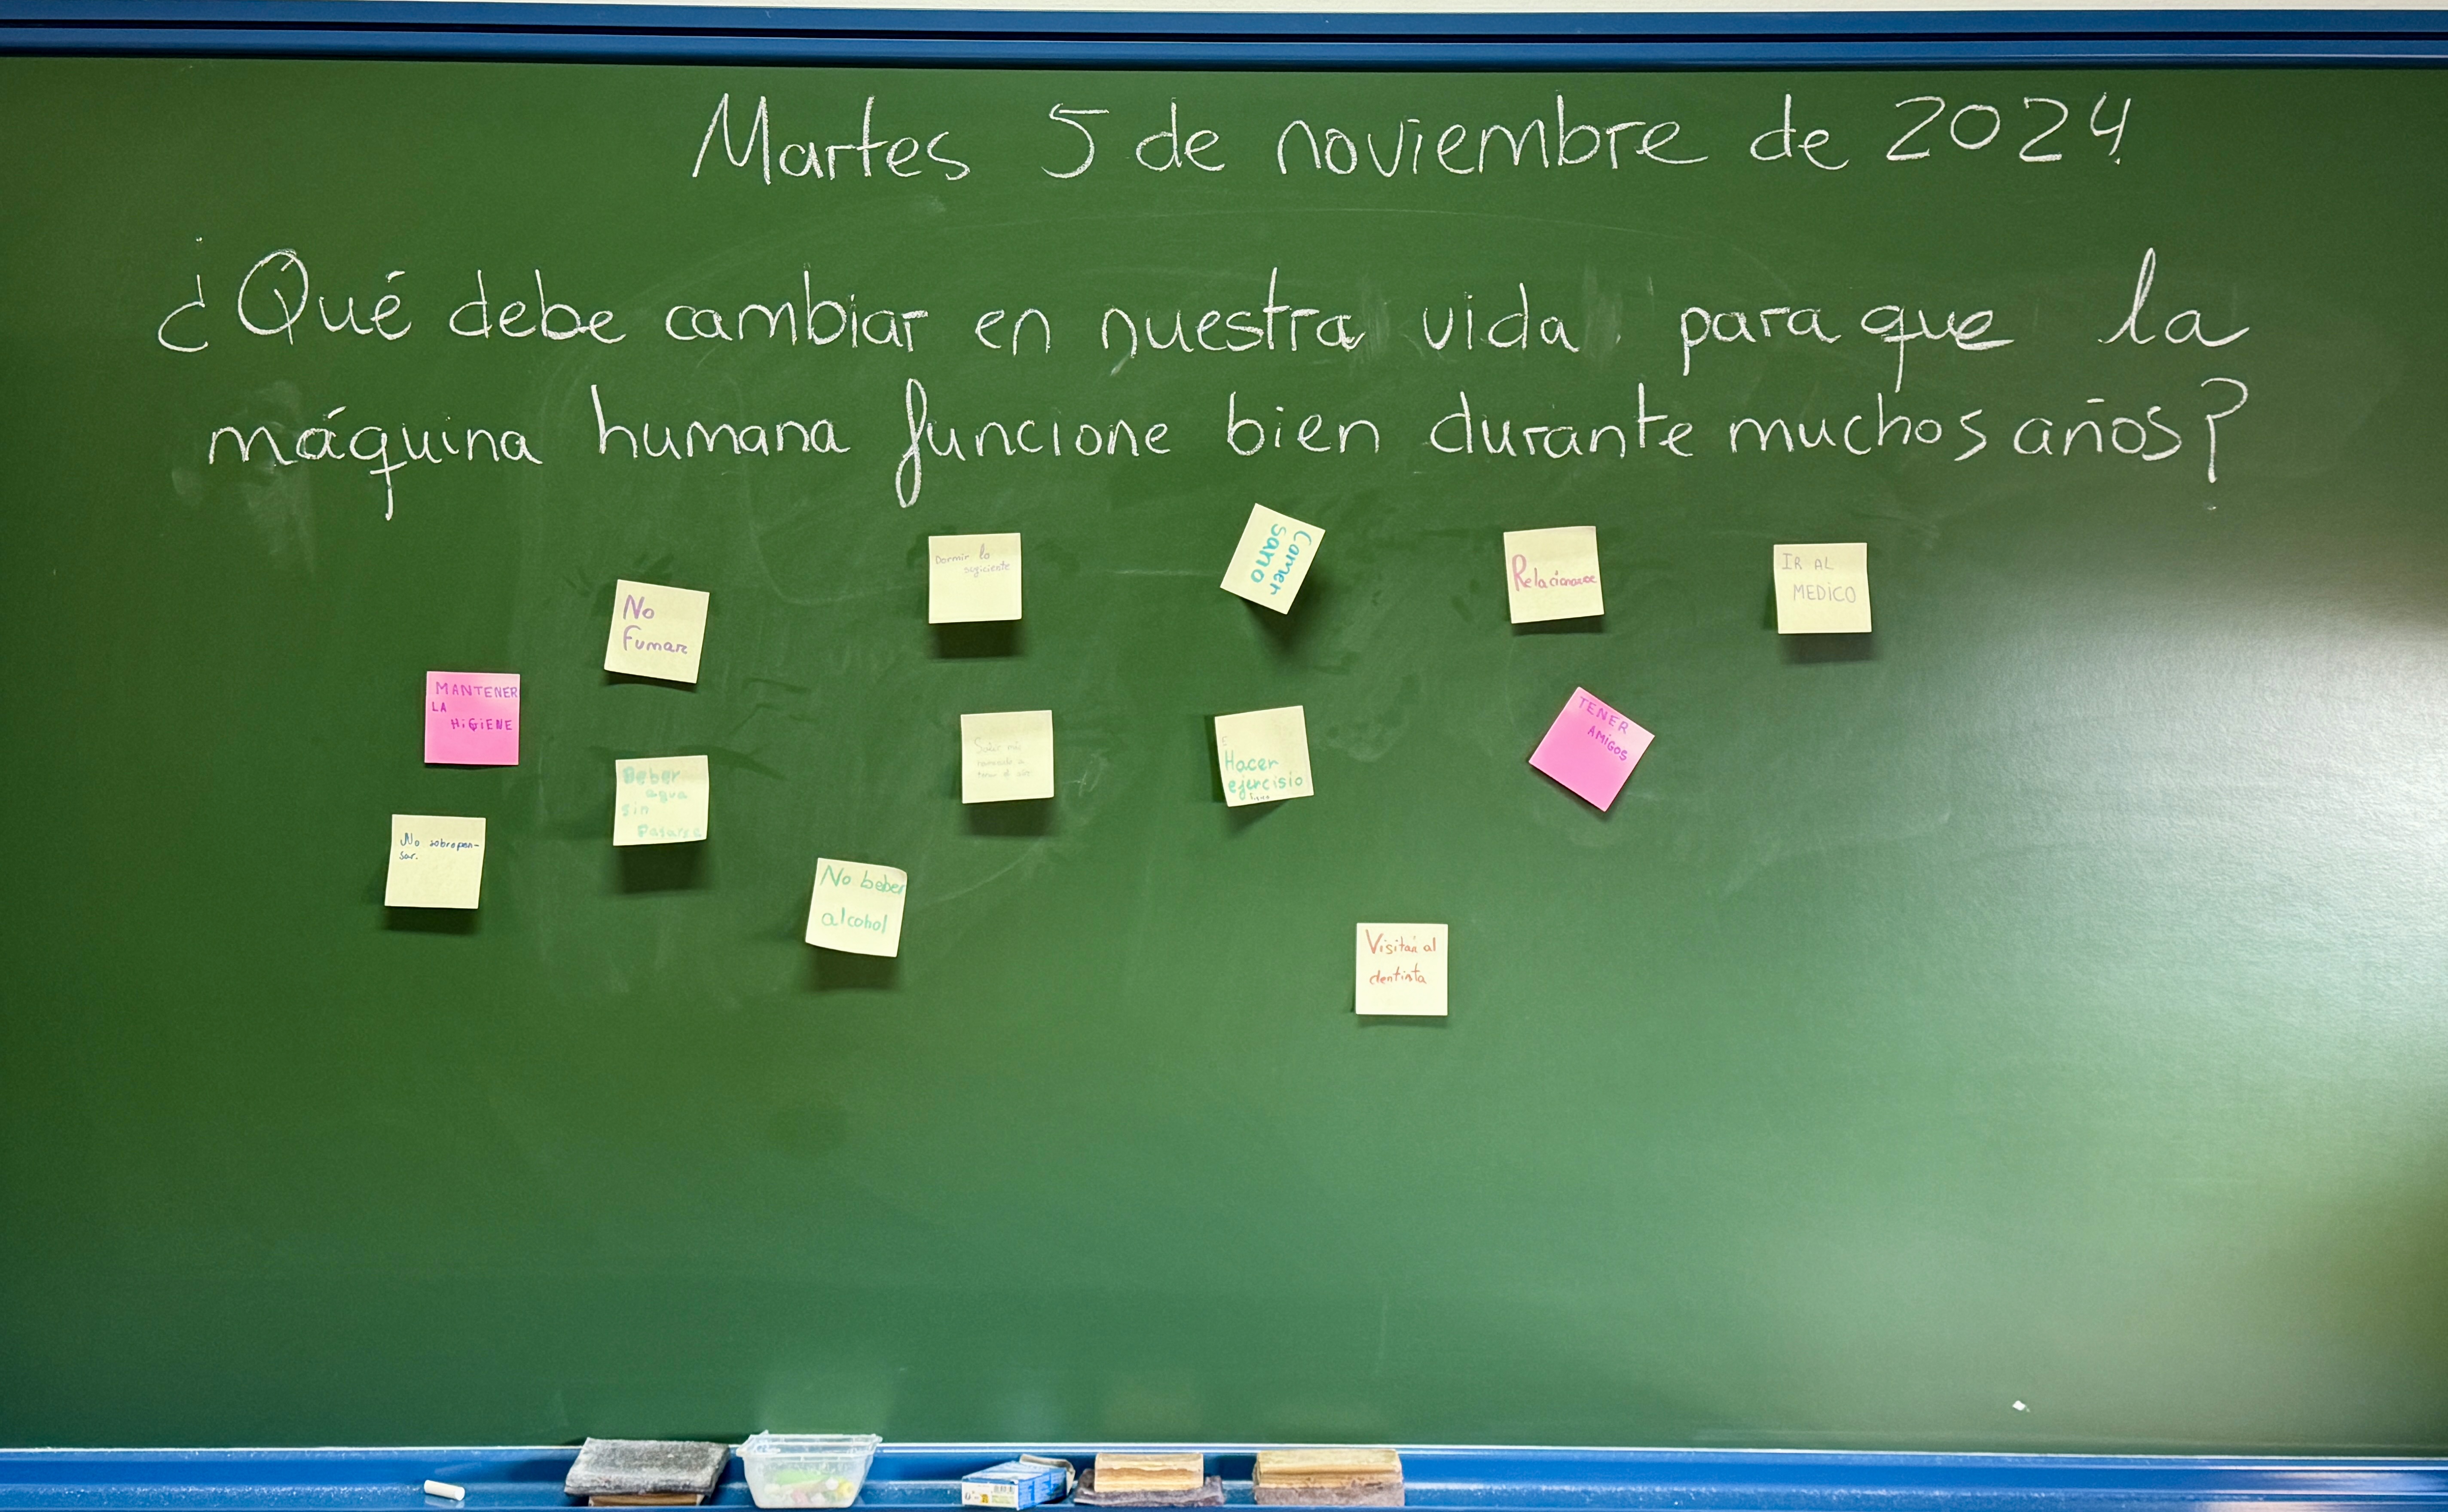 Martes 5 de noviembre de 2024
¿Qué debe cambiar en nuestra vida para que la
máquina humana funcione bien durante muchos años?
No
Fumar
Dormir lo
suficiente
Comer
sano
Relacionarce
IR AL
MEDICO
MANTENER
LA
HiGiENE
Beber
agua
sin
Pasarse
Hacer
ejercisio
TENER
AMiGOS
No sobropen-
sar.
No beber
alcohol
Visitar al
dentista